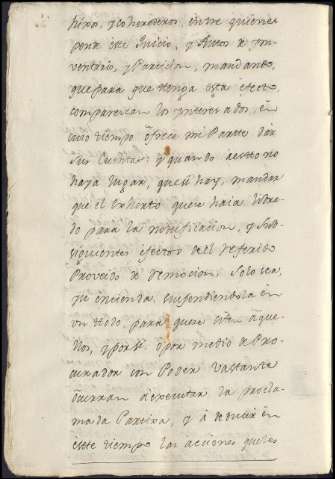 hixo, y coherederos, entre quienes
pena este Juicio, y Autos de Ym-
ventario, y Particion, mandando,
que para que tenga esto efecto,
comparezcan los ynteresados, en
cuio tiempo ofrece mi Parte dar
sus Cuentas; y quando a esto no
haya lugar, que si hay, mandar
que el exhorto que se haia libra-
do para la notificacion, y sub-
siguientes efectos del referido
Proveido de remocion, solo sea,
se entienda, suspendiendola en
un todo, para que esten aque-
llos, y por si, o por medio de Pro-
curador con Poder vastante
ocurran a executar la procla-
mada Partixa, y a deducir en
este tiempo las acciones que les